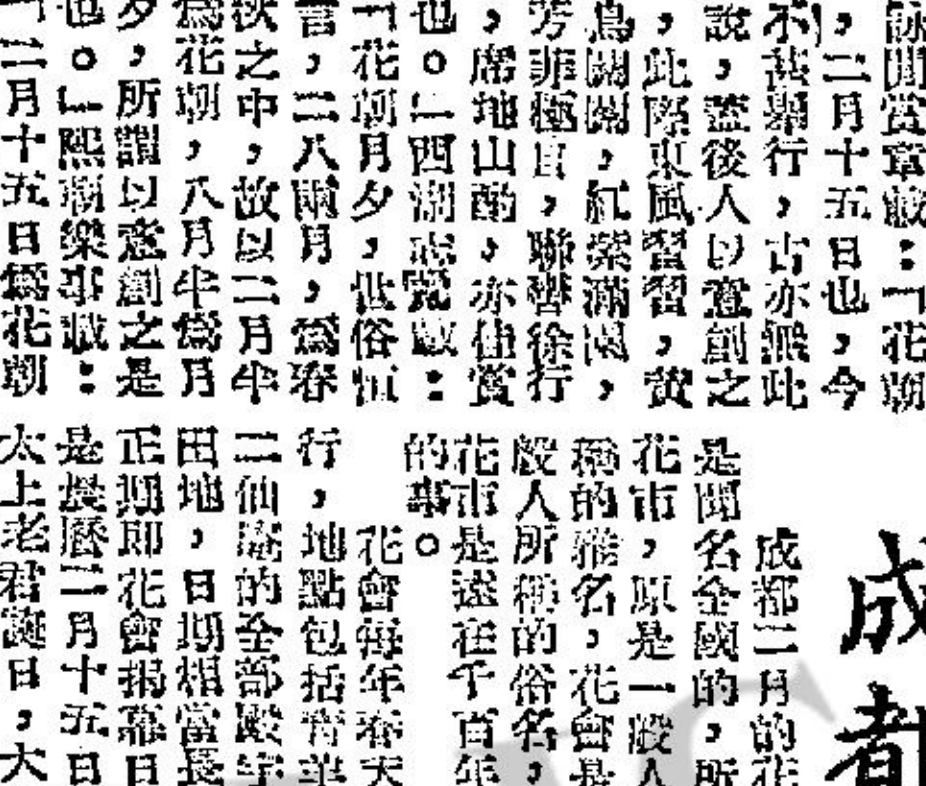 詠閒賞章載：「花朝
，二月十五日也，今
不甚舉行，古亦無此
說，蓋後人以意創之
，此際東風習習，黃
鳥關關，紅紫滿園，
芳菲極目，聯轡徐行
，席地山酌，亦佳賞
也。」西湖志覽：
「花朝月夕，世俗恒
言，二八兩月，爲春
秋之中，故以二月半
爲花朝，八月半爲月
夕，所謂以意創之是
也。」熙朝樂事載：
「二月十五日爲花朝
成都
成都二月的花
是聞名全國的，所
花市，原是一般人
稱的雅名，花會是
般人所稱的俗名，
花市是遠在千百年
的事。
花會每年春天
行，地點包括青羊
二仙庵的全部殿宇
田地，日期相當長
正期即花會揭幕日
是農曆二月十五日
太上老君誕日，大